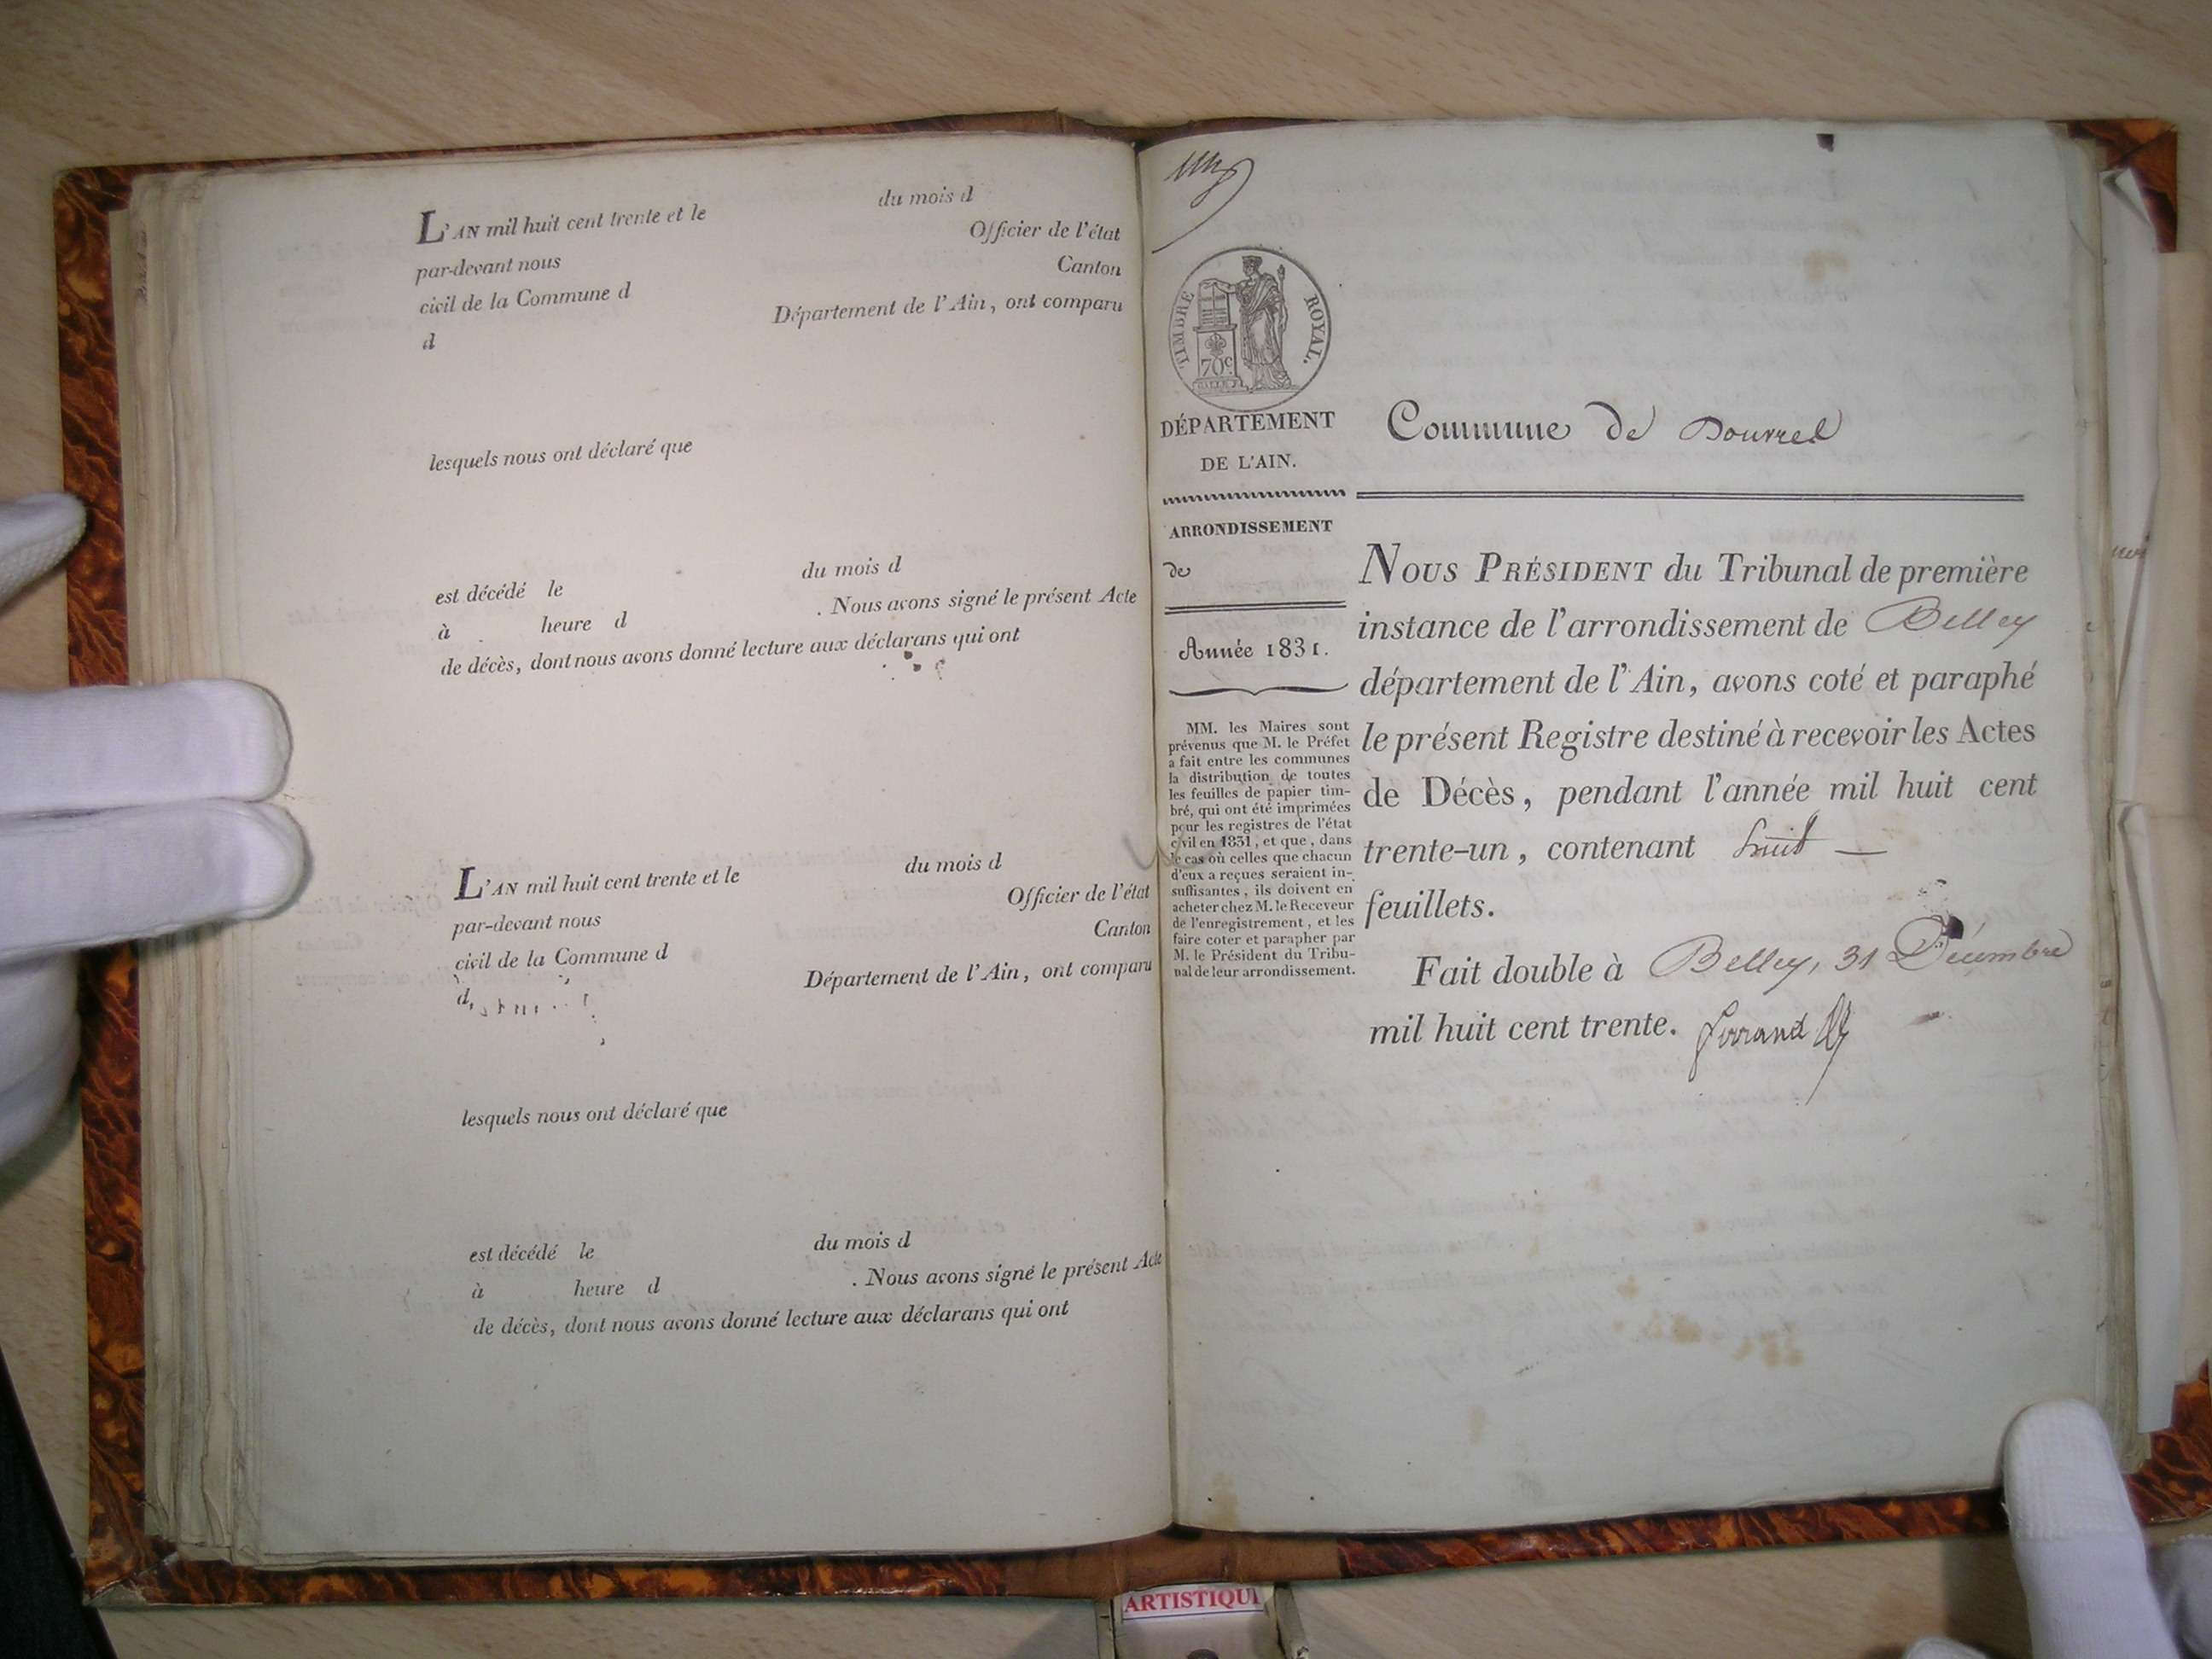 L'AN mil huit cent trente et le du mois d
par-devant nous Officier de l'état
civil de la Commune d Canton
d Département de l'Ain, ont comparu
lesquels nous ont déclaré que
est décédé le du mois d
à heure d . Nous avons signé le présent Acte
de décès, dont nous avons donné lecture aux déclarans qui ont
L'AN mil huit cent trente et le du mois d
par-devant nous Officier de l'état
civil de la Commune d Canton
d Département de l'Ain, ont comparu
lesquels nous ont déclaré que
est décédé le du mois d
à heure d . Nous avons signé le présent Acte
de décès, dont nous avons donné lecture aux déclarans qui ont
TIMBRE ROYAL.
70c.
DÉPARTEMENT
DE L'AIN.
ARRONDISSEMENT
de
Année 1831.
MM. les Maires sont
prévenus que M. le Préfet
a fait entre les communes
la distribution de toutes
les feuilles de papier tim-
bré, qui ont été imprimées
pour les registres de l'état
civil en 1831, et que, dans
le cas où celles que chacun
d'eux a reçues seraient in-
suffisantes, ils doivent en
acheter chez M. le Receveur
de l'enregistrement, et les
faire coter et parapher par
M. le Président du Tribu-
nal de leur arrondissement.
Commune de Douvres
NOUS PRÉSIDENT du Tribunal de première
instance de l'arrondissement de Belley
département de l'Ain, avons coté et paraphé
le présent Registre destiné à recevoir les Actes
de Décès, pendant l'année mil huit cent
trente-un, contenant huit —
feuillets.
Fait double à Belley, 31 Décembre
mil huit cent trente.
ARTISTIQU